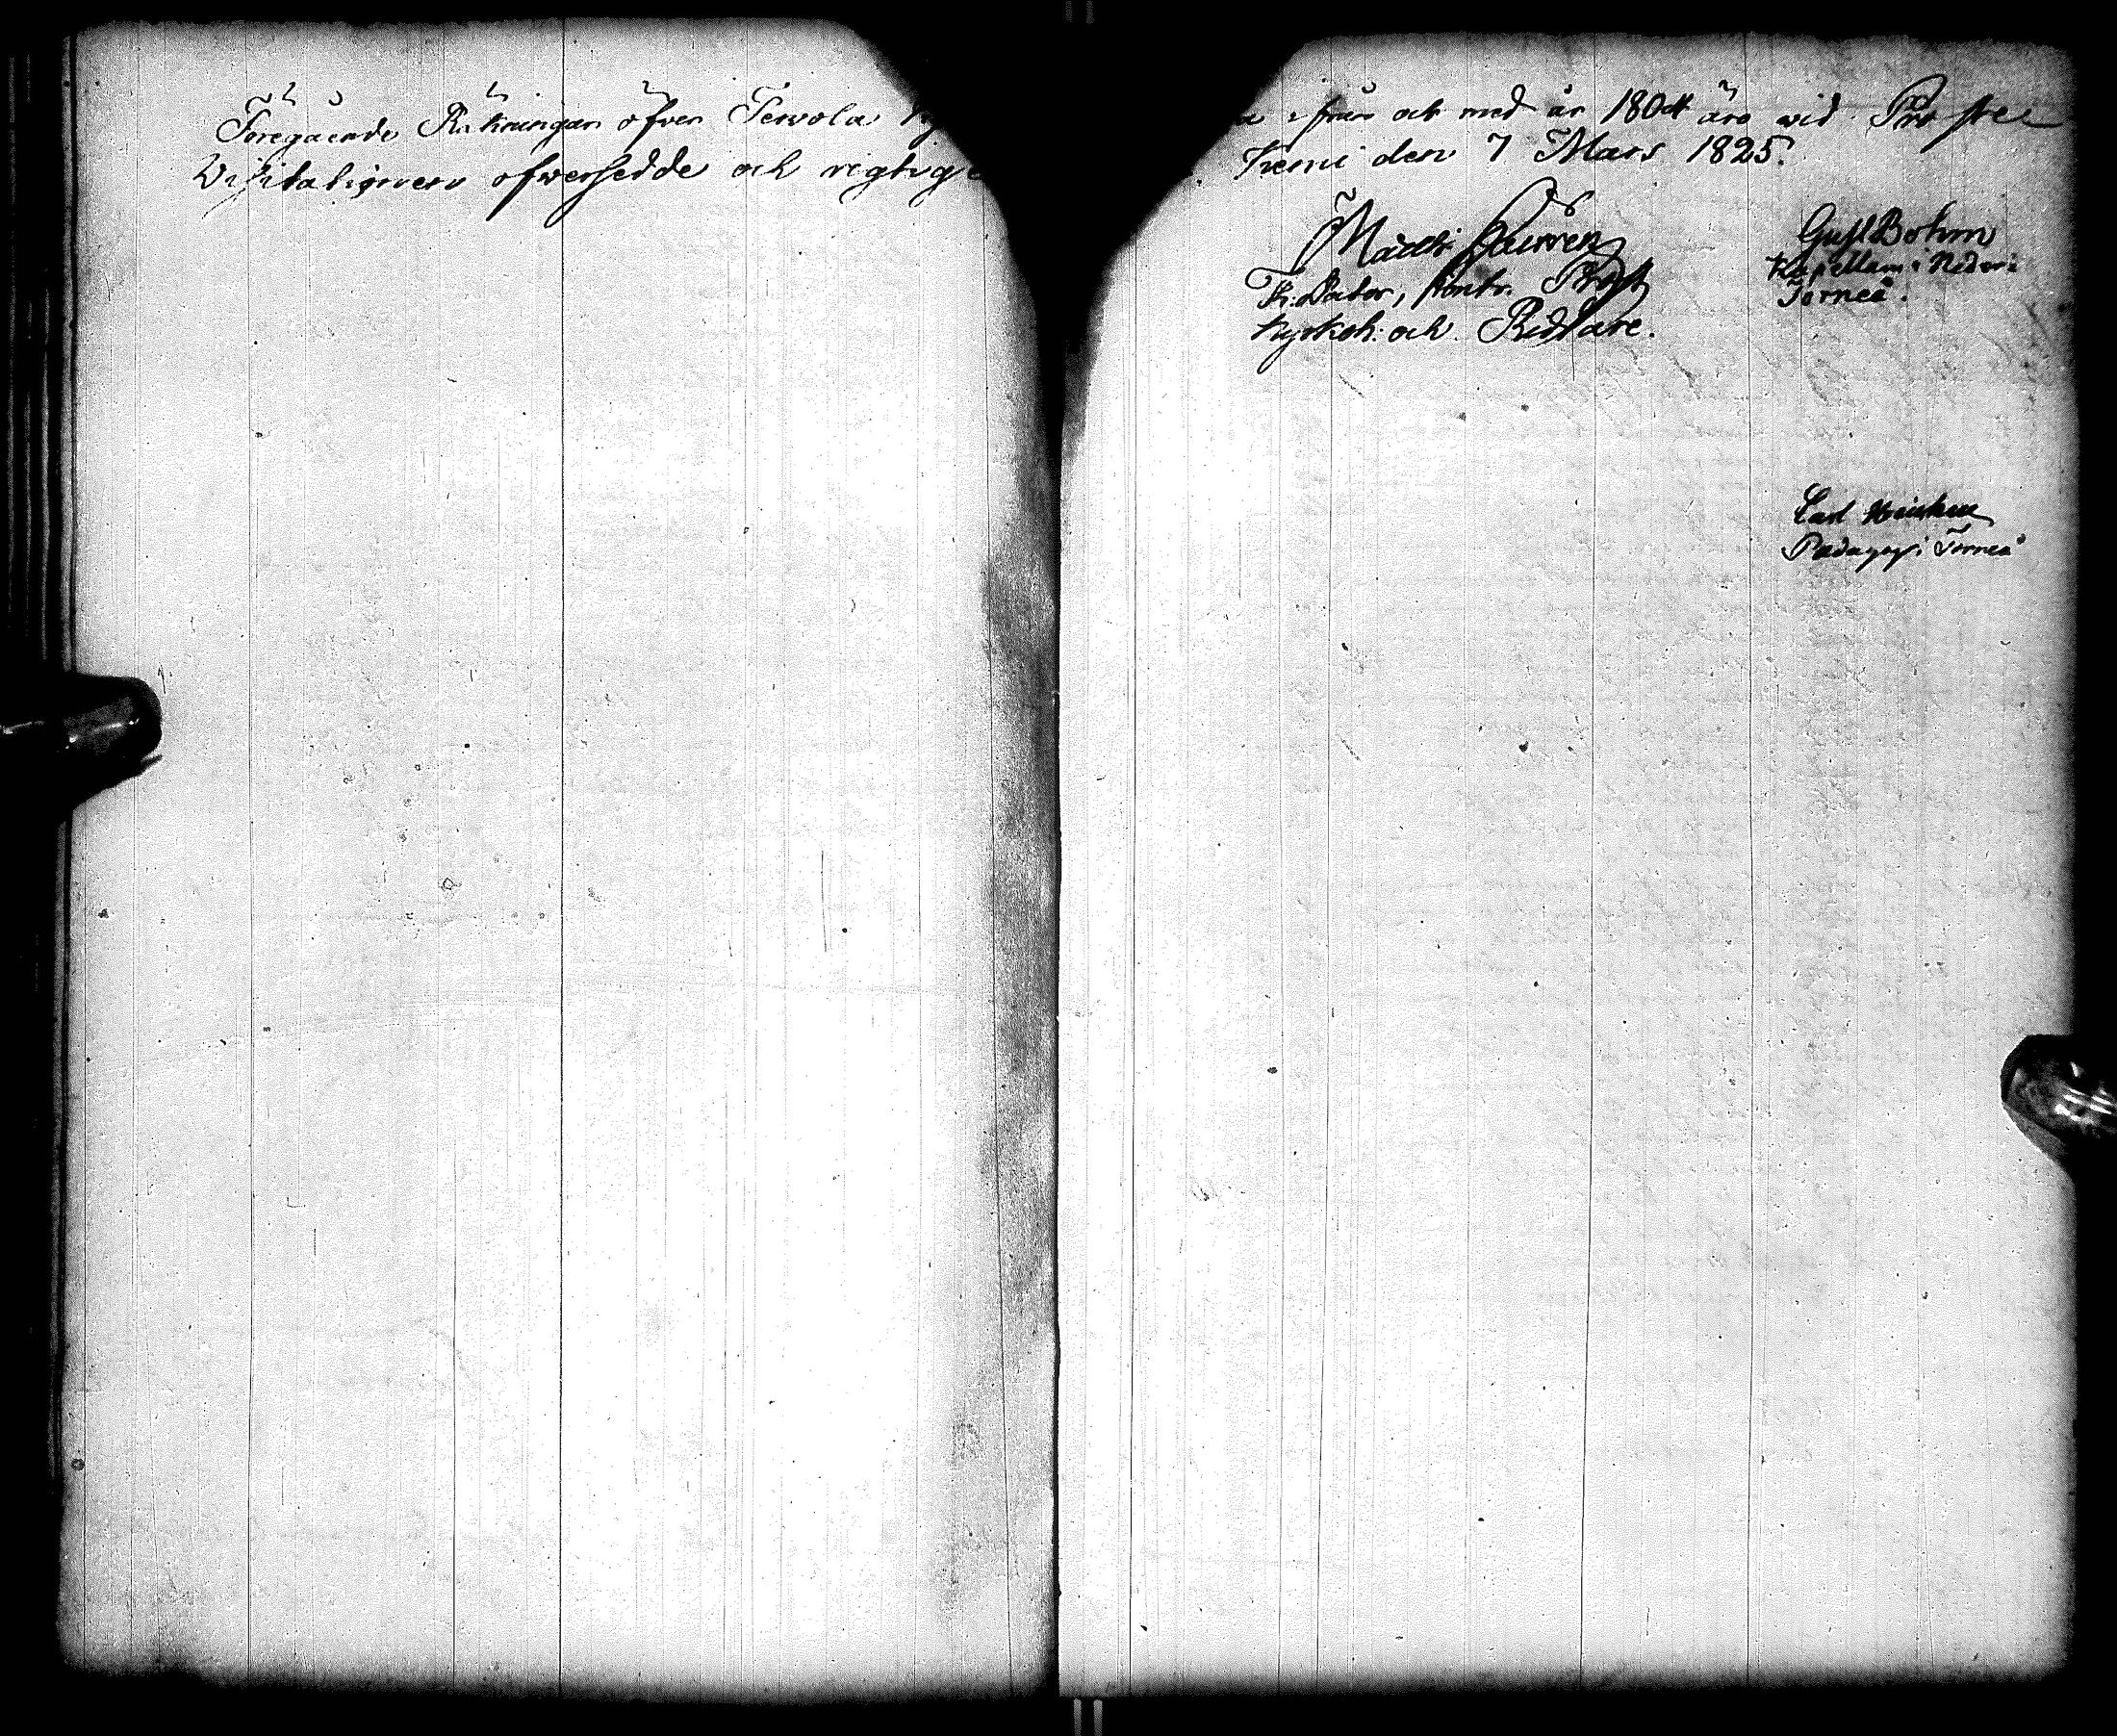 Föregående Räkningar öfver Terwola Ky
a ifrån och med år 1804 äro wid Proste
Visitationen öfwersedde och rigtige
Kemi den 7 Mars 1825.
Matth:
Th. Doctor, Kontr. Prost
Kyrkoh: och Riddare.
Gust Bohm
Kapellan i Neder
Torneå.
Carl
Pædagog i Torneå